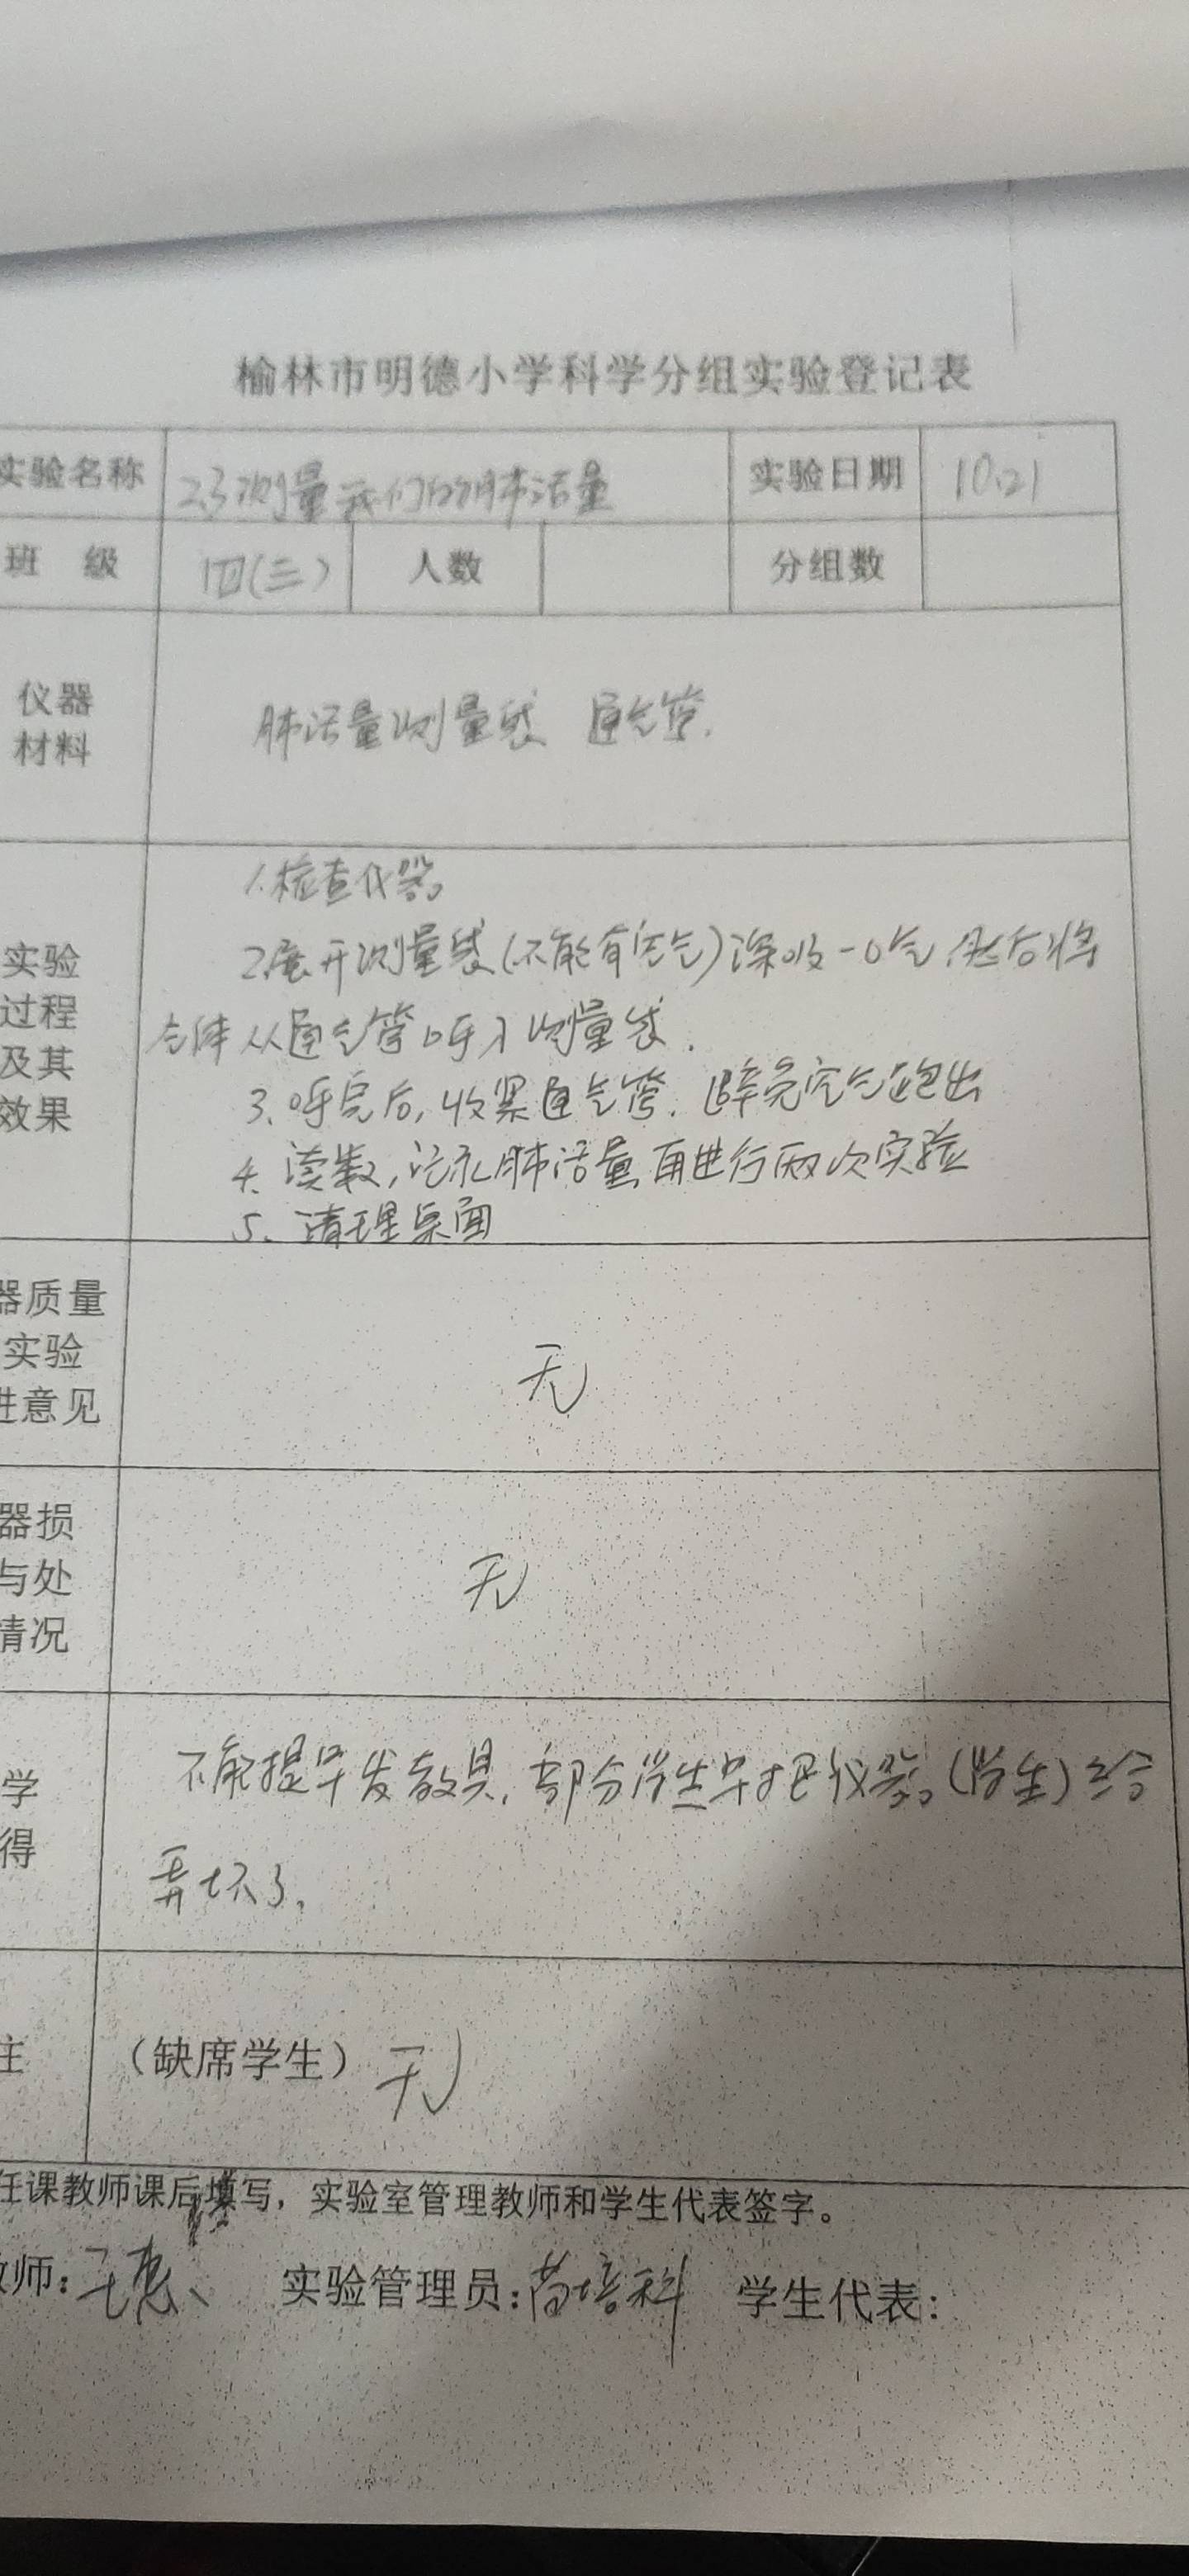 榆林市明德小学科学分组实验登记表
实验名称 2.3测量我们的肺活量 实验日期 10.21
班 级 四(三) 人数 分组数
仪器
材料
肺活量测量袋 通气管.
实验
过程
及其
效果
1.检查仪器
2.展开测量袋(不能有空气)深吸一口气,然后将
气体从通气管呼入测量袋.
3.呼完后,收紧通气管.避免空气跑出
4.读数,记录肺活量,再进行两次实验
5.清理桌面
器质量
实验
进意见
无
器损
与处
情况
无
学
得
不能提早发教具,部分学生早把仪器(学生)给
弄坏了.
注
(缺席学生)无
任课教师课后填写,实验室管理教师和学生代表签字。
教师: 实验管理员: 学生代表: